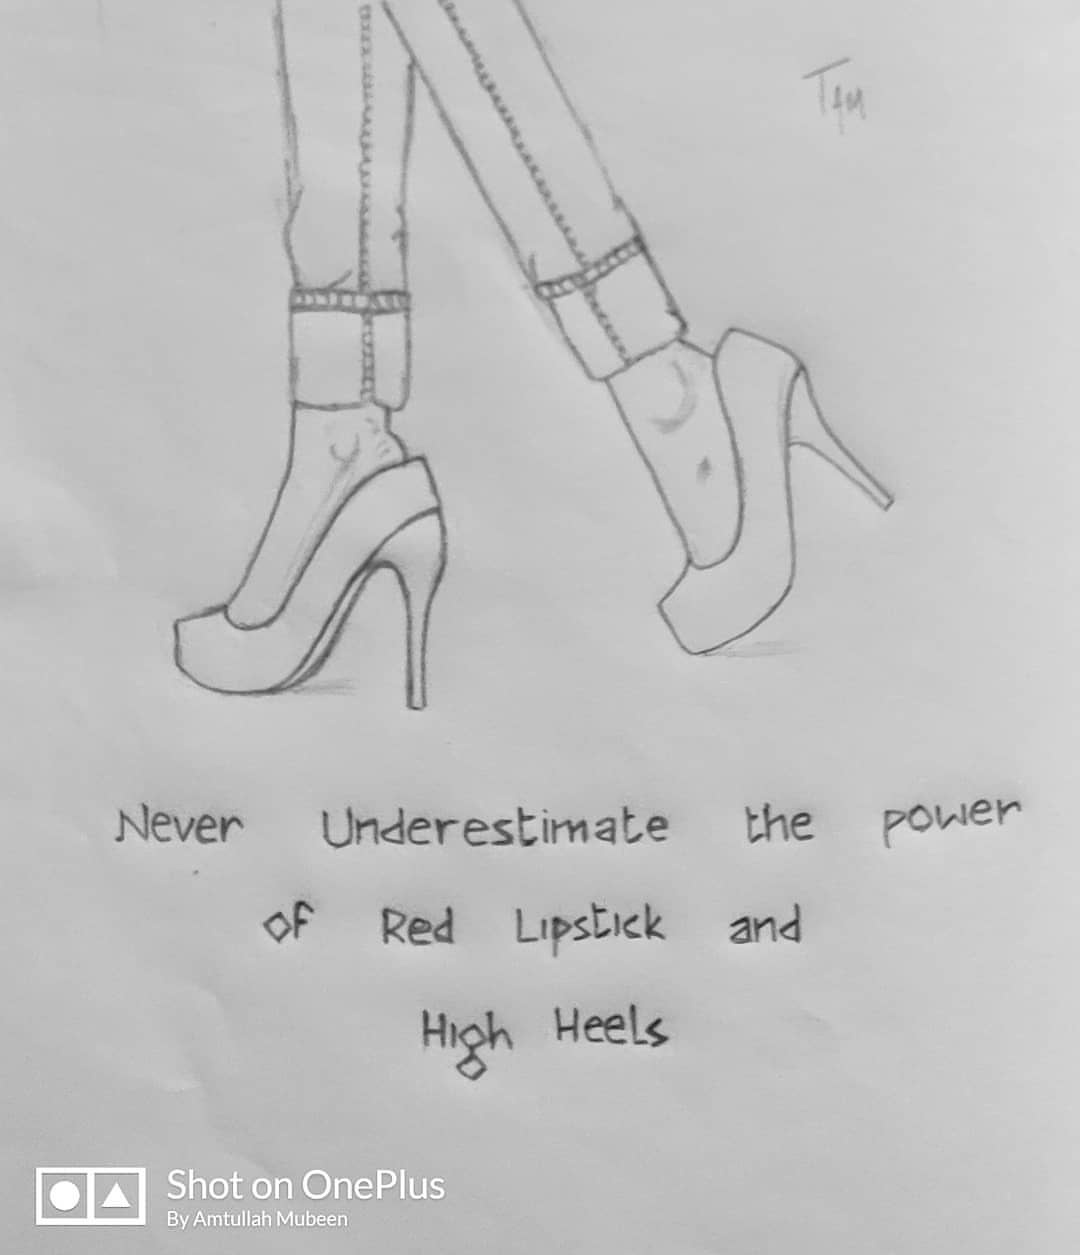 Never Underestimate the power
of Red Lipstick and
High Heels
Shot on OnePlus
By Amtullah Mubeen